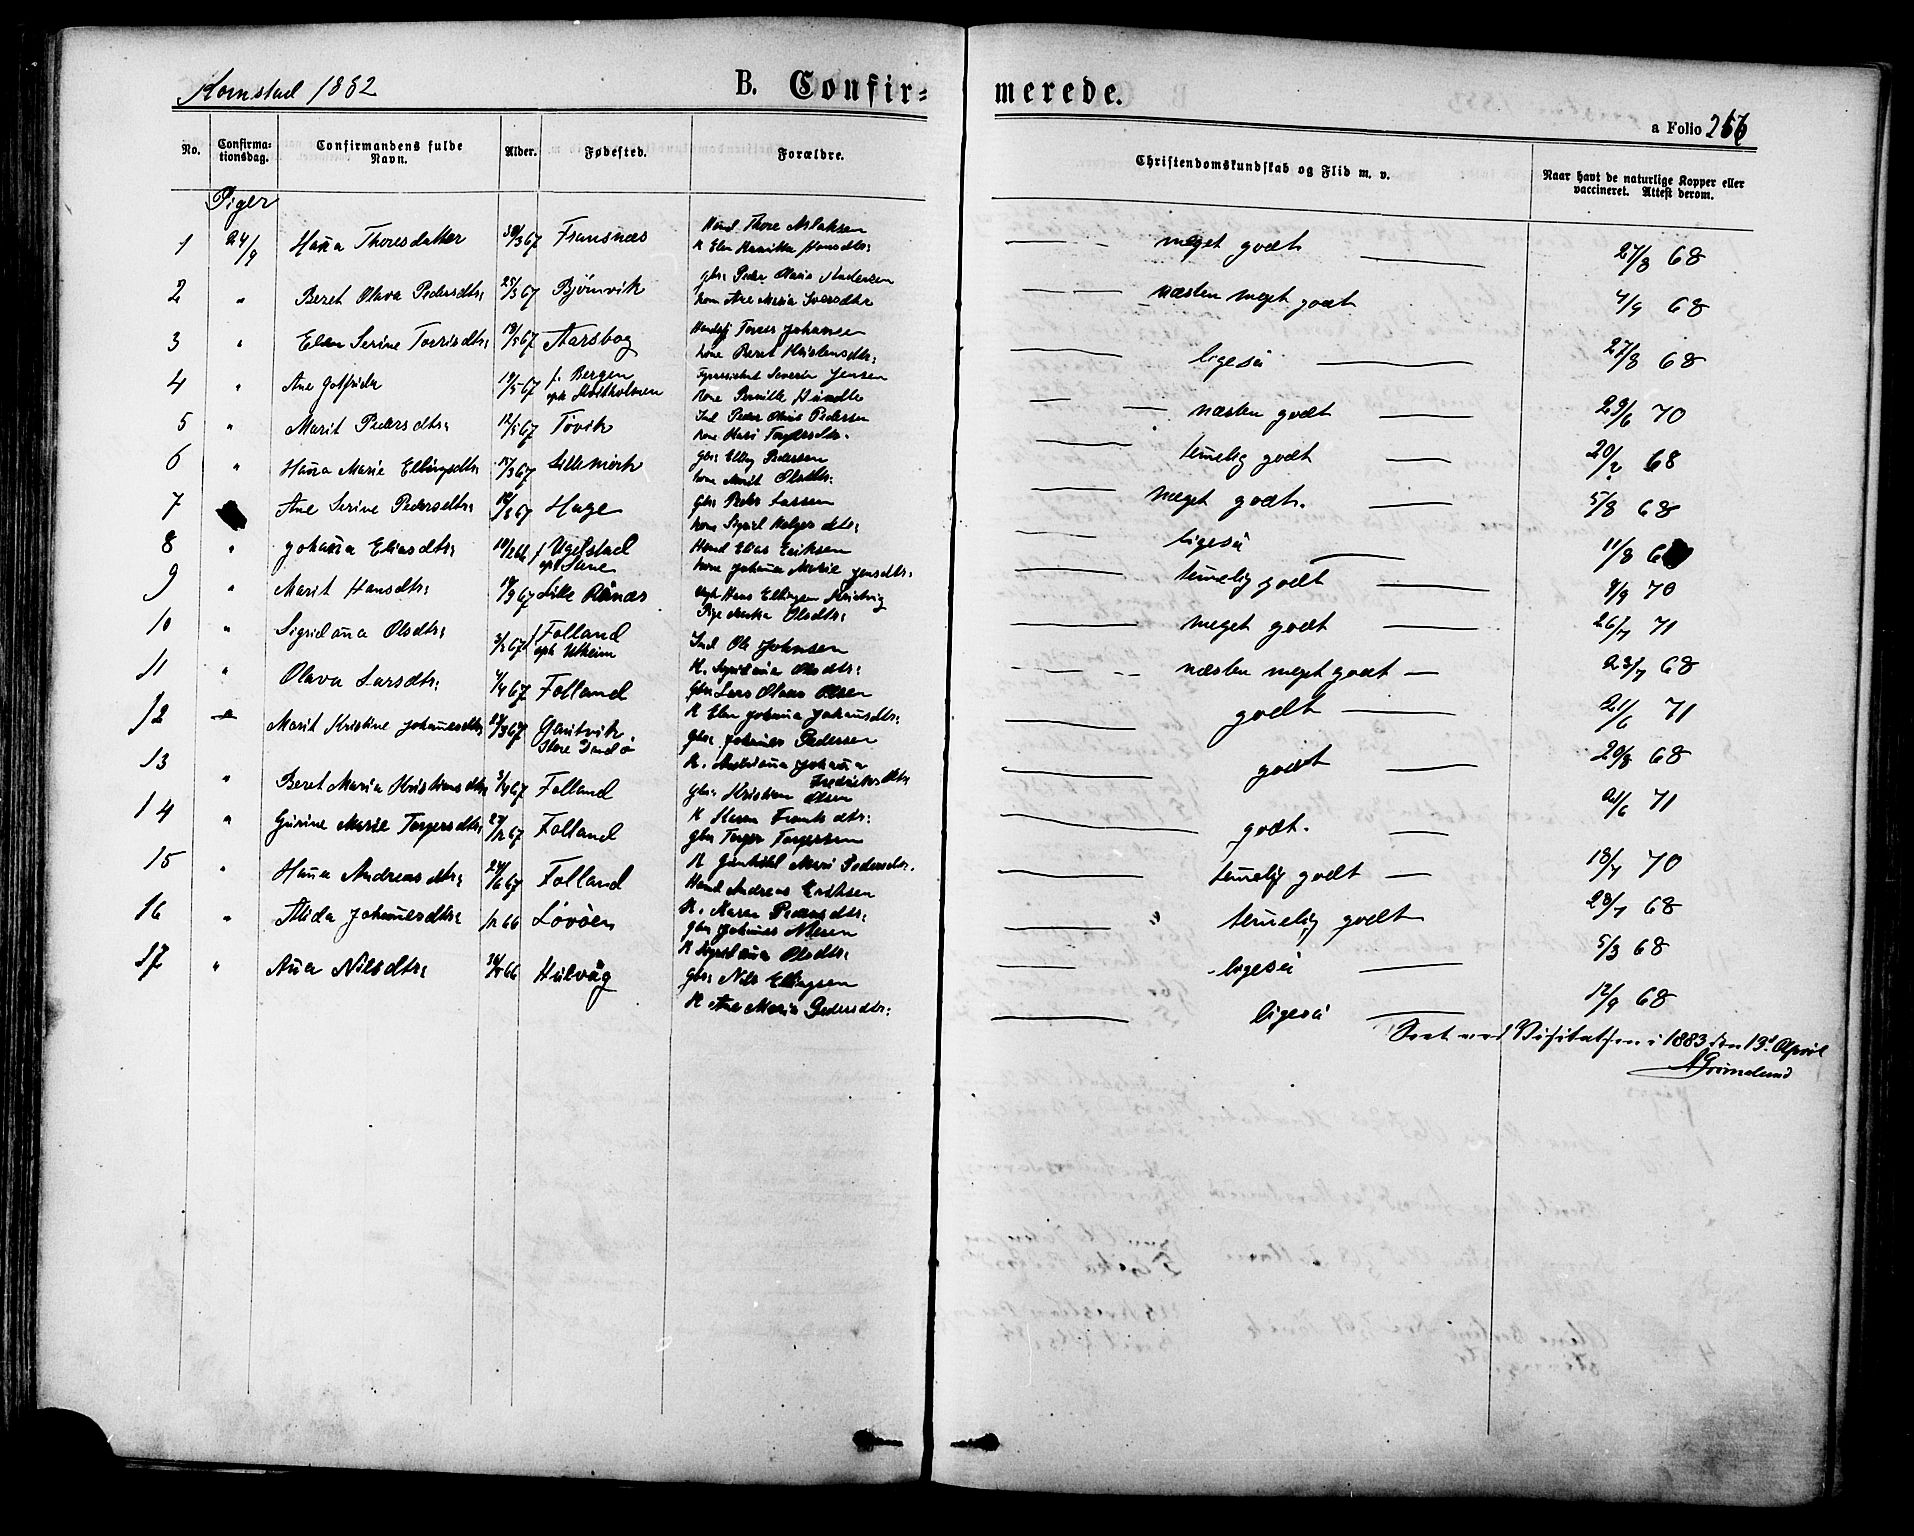 Kornstad 1882
B. Confir-
merede.
a Folio 266
No.
Confirma-
tionsdag.
Confirmandens fulde
Navn.
Alder.
Fødested.
Forældre.
Christendomskundskab og Flid m. v.
Naar havt de naturlige Kopper eller
vaccineret. Attest derom.
Piger
1 24/9 Hana Thoresdatter 30/3 67 Fransnæs Hmd Thore Aslaksen
K Elen Hansdtr:
meget godt 27/8 68
2 " Beret Olava Pedersdtr: 25/3 67 Bjørnvik gbr: Peder Olaus Andersen
kone Ane Maria Iversdtr
næsten meget godt 4/9 68
3 " Elen Serine Torrisdtr: 18/5 67 Aarsbog Torres Johansen
kone Beret Kristensdtr:
ligeså 27/8 68
4 " Ane Gotfrida 19/5 67 f. Bergen Severin Jensen
oph Kone Pernille
næsten godt 29/6 70
5 " Marit Pedersdtr: 12/5 67 Tøvik Ind Peder Olaus Pedersen
kone Mari
temelig godt 20/2 68
6 " Hana Marie Ellingsdtr: 15/3 67 Lillemork Gbr: Elling Pedersen
kone Marit Olsdtr:
meget godt. 5/8 68
7 Ane Serine Pedersdtr: 67 Hage Gbr: Peder Larsen
kone Sigrid Holgersdtr:
ligeså 11/8
8 " Johana Eliasdtr: f Ugelstad Hmd Elias Eriksen
oph kone Johana Marie Jensdtr:
temelig godt 9/9 70
9 " Marit Hansdtr: 18/9 67 Lille Rånæs Ungk Hans Ellingsen
Pige Olsdtr:
meget godt 26/7 71
10 " Sigridana Olsdtr: 3/2 67 f Folland Ind Ole Johnsen
oph Utheim K. Sigridana Olsdtr:
næsten meget godt 23/7 68
11 " Olava Larsdtr: 7/4 67 Folland Gbr Lars Olaus Olsen
K Elen Johana Johansdtr:
godt 21/6 71
12 Marit Kristine Johanesdtr: 3 67 Gautvik Gbr: Johanes Pedersen
K. Johana
Fredriksdtr
godt 20/8 68
13 " Beret Maria Kristensdtr 3/4 67 Folland gbr: Kristen Olsen
K Frantsdtr:
godt. 21/6 71
14 " Gurine Marie Torgersdtr: 27/12 67 Folland gbr Torger Torgersen
K Gunhild Mari Pedersdtr.
temelig godt 18/7 70
15 " Hana Andreasdtr: 24/6 67 Folland Hmd Andreas Eriksen
K. Maren Pedersdtr:
temelig godt 28/7 68
16 " Alida Johanesdtr: 66 Løvøen gbr Johanes Nilsen
K Sigridana Olsdtr:
ligeså 5/3 68
17 " Ana Nilsdtr: 66 Hulvåg gbr: Nils Ellingsen
K Ane Maria Pedersdtr:
ligeså 12/9 68
Seet ved Visitatsen i 1883 den 13d April
A Grimelund